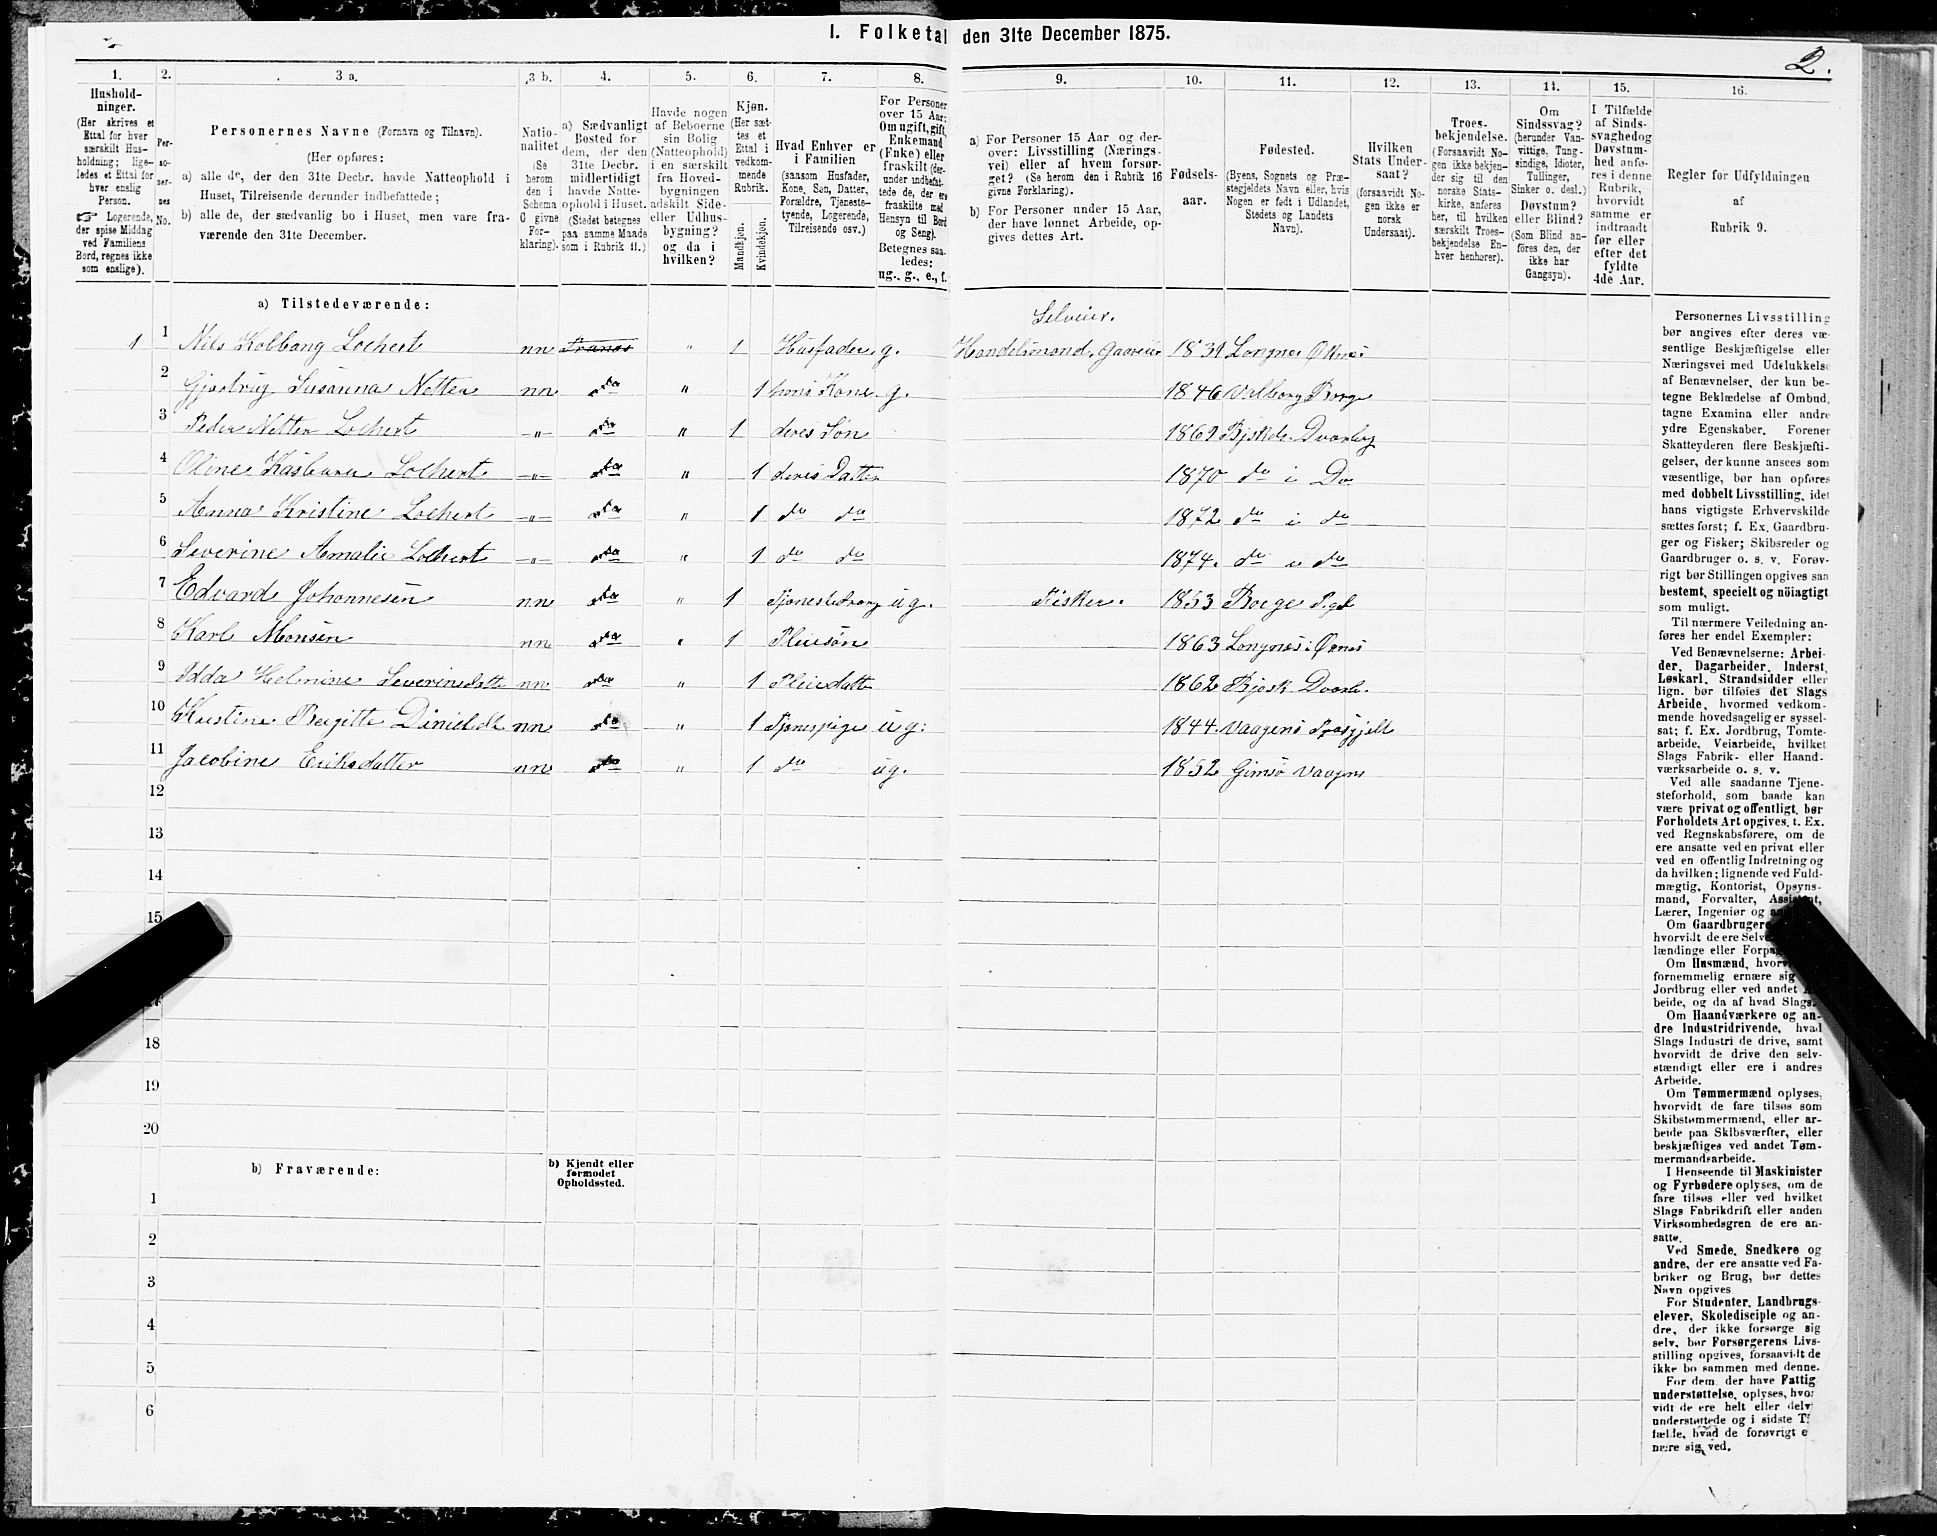 I. Folketal den 31te December 1875.
2.
1. 2. 3 a. 3 b. 4. 5. 6. 7. 8. 9. 10. 11. 12. 13. 14. 15. 16.
Hushold-
ninger.
(Her skrives et
Ettal for hver
særskilt Hus-
holdning; lige-
ledes et Ettal for
hver enslig
Person.
☞ Logerende,
der spise Middag
ved Familiens
Bord, regnes ikke
som enslige).
Per-
so-
ner-
nes
No.
Personernes Navne (Fornavn og Tilnavn).
(Her opføres:
a) alle de, der den 31te Decbr. havde Natteophold i
Huset, Tilreisende derunder indbefattede;
b) alle de, der sædvanlig bo i Huset, men vare fra-
værende den 31te December.
Natio-
nalitet
(Se
herom
den i
Schema
O givne
For-
klaring).
a) Sædvanligt
Bosted for
dem, der den
31te Decbr.
midlertidigt
havde Natte-
ophold i Huset.
(Stedet betegnes
paa samme Maade
som i Rubrik 11.)
Havde nogen
af Beboerne
sin Bolig
(Natteophold)
i en særskilt
fra Hoved-
bygningen
adskilt Side-
eller Udhus-
bygning?
og da i
hvilken?
Kjøn.
(Her sæt-
tes et
Ettal i
vedkom-
mende
Rubrik.
Mandkjøn.
Kvindekjøn.
Hvad Enhver er
i Familien
(saasom Husfader,
Kone, Søn, Datter,
Forældre, Tjeneste-
tyende, Logerende,
Tilreisende osv.)
For Personer
over 15 Aar:
Om ugift, gift,
Enkemand
(Enke) eller
fraskilt (der-
under indbefat-
tede de, der ere
fraskilte med
Hensyn til Bord
og Seng).
Betegnes saa-
ledes:
ug., g., e., f.
a) For Personer 15 Aar og der-
over: Livsstilling (Nærings-
vei) eller af hvem forsør-
get? (Se herom den i Rubrik 16
givne Forklaring).
b) For Personer under 15 Aar,
der have lønnet Arbeide, op-
gives dettes Art.
Fødsels-
aar.
Fødested.
(Byens, Sognets og Præ-
stegjeldets Navn eller, hvis
Nogen er født i Udlandet,
Stedets og Landets
Navn).
Hvilken
Stats Under-
saat?
(forsaavidt No-
gen ikke er
norsk
Undersaat).
Troes-
bekjendelse.
(Forsaavidt No-
gen ikke bekjen-
der sig til den
norske Stats-
kirke, anføres
her, til hvilken
særskilt Troes-
bekjendelse En-
hver henhører).
Om
Sindssvag?
(herunder Van-
vittige, Tung-
sindige, Idioter,
Tullinger,
Sinker o. desl.)
Døvstum?
eller Blind?
(Som Blind an-
føres den, der
ikke har
Gangsyn).
I Tilfælde
af Sinds-
svaghed og
Døvstum-
hed anfø-
res i denne
Rubrik,
hvorvidt
samme er
indtraadt
før eller
efter det
fyldte
4de Aar.
Regler for Udfyldningen
af
Rubrik 9.
a) Tilstedeværende:
Selveier.
1 1 Nils Kolbang Lochert nn Tranøs " 1 Husfader g. Handelsmand, Gaardeier 1831 Langnes Øksnes
2 Gjertrug Susanna Netter nn do " 1 hans Kone g. 1846 Valberg Borge
3 Peder Netter Lochert -"- do " 1 deres Søn 1869 Bjsk. Dverberg
4 Oline Kasbara Lochert -"- do " 1 deres Datter 1870 do i Do
5 Anna Kristine Lochert -"- do " 1 do do 1872 do i do
6 Severine Amalie Lochert -"- do " 1 do do 1874. do i do
7 Edvard Johannesen nn do " 1 Tjenestedreng ug. Fisker. 1853 Borge Pgd
8 Karl Monsen nn do " 1 Pleiesøn 1863 Langnæs i Øxnes
9 Idda Helmine Severinsdatter nn do " 1 Pleiedatter 1862 Bjøsk. Dverb.
10 Kristine Bergitte Danielsdtr nn do " 1 Tjenespige ug. 1844. Vaagens Præsgjeld
11 Jacobine Eriksdatter nn do " 1 do ug. 1852 Gimsø Vaagens
12
13
14
15
18
19
20
b) Fraværende:
b) Kjendt eller
formodet
Opholdssted.
1
2
3
4
5
6
Personernes Livsstilling
bør angives efter deres væ-
sentlige Beskjæftigelse eller
Næringsvei med Udelukkelse
af Benævnelser, der kun be-
tegne Beklædelse af Ombud,
tagne Examina eller andre
ydre Egenskaber. Forener
Skatteyderen flere Beskjæfti-
gelser, der kunne ansees som
væsentlige, bør han opføres
med dobbelt Livsstilling, idet
hans vigtigste Erhvervskilde
sættes først; f. Ex. Gaardbru-
ger og Fisker; Skibsreder og
Gaardbruger o. s. v. Forøv-
rigt bør Stillingen opgives saa
bestemt, specielt og nöiagtigt
som muligt.
Til nærmere Veiledning an-
føres her endel Exempler:
Ved Benævnelserne: Arbei-
der, Dagarbeider, Inderst,
Løskarl, Strandsidder eller
lign. bør tilføies det Slags
Arbeide, hvormed vedkom-
mende hovedsagelig er syssel-
sat; f. Ex. Jordbrug, Tomte-
arbeide, Veiarbeide, hvilket
Slags Fabrik- eller Haand-
værksarbeide o. s. v.
Ved alle saadanne Tjene-
steforhold, som baade kan
være privat og offentligt, bør
Forholdets Art opgives, t. Ex.
ved Regnskabsførere, om de
ere ansatte ved en privat eller
ved en offentlig Indretning og
da hvilken; lignende ved Fuld-
mægtig, Kontorist, Opsyns-
mand, Forvalter, Assistent,
Lærer, Ingeniør og
Om Gaardbrugere
hvorvidt de ere Selv
lændinge eller Forp
Om Husmænd, hvor
fornemmelig ernære sig
Jordbrug eller ved andet
beide, og da af hvad Slags.
Om Haandværkere og an-
dre Industridrivende, hvad
Slags Industri de drive, samt
hvorvidt de drive den selv-
stændigt eller ere i andres
Arbeide.
Om Tømmermænd oplyses,
hvorvidt de fare tilsøs som
Skibstømmermænd, eller ar-
beide paa Skibsværfter, eller
beskjæftiges ved andet Tøm-
mermandsarbeide.
I Henseende til Maskinister
og Fyrbødere oplyses, om de
fare tilsøs eller ved hvilket
Slags Fabrikdrift eller anden
Virksomhedsgren de ere an-
satte.
Ved Smede, Snedkere og
andre, der ere ansatte ved Fa-
briker og Brug, bør dettes
Navn opgives
For Studenter, Landbrugs-
elever, Skoledisciple og an-
dre, der ikke forsørge sig
selv, bør Forsørgerens Livs-
stilling opgives, forsaavidt de
ikke bo sammen med denne.
For dem, der have Fattig
understøttelse, oplyses, hvor
vidt de ere helt eller delv
understøttede og i sidste T
fælde, hvad de forøvrigt e
nære sig ved.